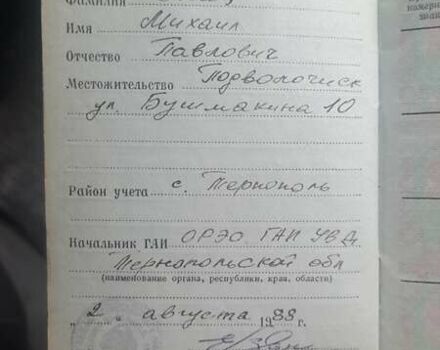 Фамилия
Имя Михаил
Отчество Павлович
Местожительство Подволочиск
ул. Бушмакина 10
Район учета с. Тернополь
Начальник ГАИ ОРЭО ГАИ УВД
Тернопольской обл
(наименование органа, республики, края, области)
„2" августа 1988 г.